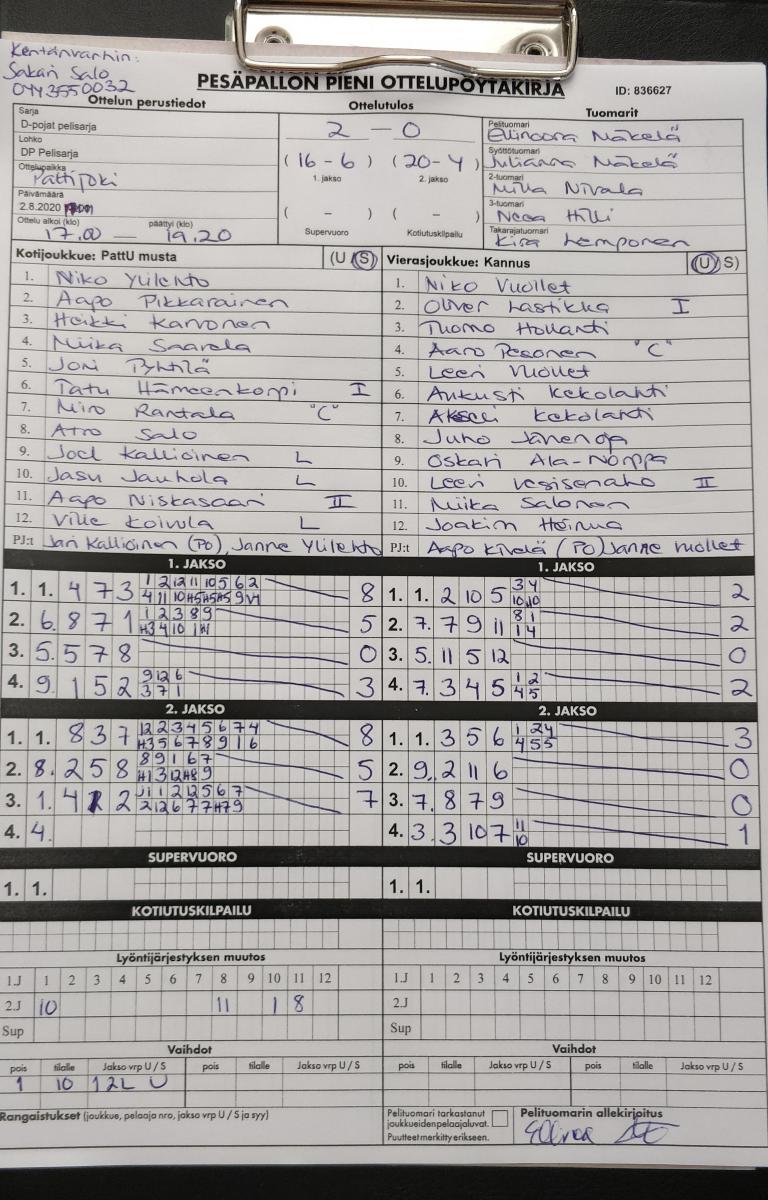 Kentänvanhin:
Sakari Salo
0443550032
PESÄPALLON PIENI OTTELUPÖYTÄKIRJA ID: 836627
Ottelun perustiedot
Ottelutulos
Tuomarit
Sarja
D-pojat pelisarja
Lohko
DP Pelisarja
Ottelupaikka
Pattijoki
Päivämäärä
2.8.2020
Ottelu alkoi (klo) päättyi (klo)
17.00 — 19.20
2 — 0
(16-6) (20-4)
1. jakso 2. jakso
( - ) ( - )
Supervuoro Kotiutuskilpailu
Pelituomari
Ellinoora Mäkelä
Syöttötuomari
Julianna Mäkelä
2-tuomari
Milla Nivala
3-tuomari
Neea Hilli
Takarajatuomari
Kira Lemponen
Kotijoukkue: PattU musta (U S)
1. Niko Ylilehto
2. Aapo Pikkarainen
3. Heikki Karvonen
4. Miika Saarela
5. Joni Pyhtilä
6. Tatu Hämeenkorpi I
7. Miro Rantala "C"
8. Atro Salo
9. Joel Kallioinen L
10. Jasu Jauhola L
11. Aapo Niskasaari II
12. Ville Koivula L
PJ:t Jari Kallioinen (PO), Janne Ylilehto
Vierasjoukkue: Kannus (U S)
1. Niko Vuollet
2. Oliver Lastikka I
3. Tuomo Hollanti
4. Aaro Pesonen "C"
5. Leevi Vuollet
6. Aukusti Kekolahti
7. Akseli Kekolahti
8. Juho Jänenoja
9. Oskari Ala-Norppa
10. Leevi Vesisenaho II
11. Miika Salonen
12. Joakim
PJ:t Aapo Kivelä (PO) Janne Vuollet
1. JAKSO
1. 1. 4 7 3 1 2 12 11 10 5 6 2 8
4 11 10 H5 H5 H5 9 V1
2. 6. 8 7 1 1 2 3 8 9 5
H3 4 10 1
3. 5. 5 7 8 0
4. 9. 1 5 2 9 12 6 3
3 7 1
1. JAKSO
1. 1. 2 10 5 3 4 2
10 10
2. 7. 7 9 11 8 1 2
1 4
3. 5. 11 5 12 0
4. 7. 3 4 5 1 2 2
4 5
2. JAKSO
1. 1. 8 3 7 12 2 3 4 5 6 7 4 8
H3 5 6 7 8 9 1 6
2. 8. 2 5 8 8 9 1 6 7 5
H1 3 12 H8 9
3. 1. 4 2 J1 1 2 12 5 6 7 7
2 12 6 7 7 H7 9
4. 4.
2. JAKSO
1. 1. 3 5 6 1 2 4 3
4 5 5
2. 9. 2 11 6 0
3. 7. 8 7 9 0
4. 3. 3 10 7 11 1
10
SUPERVUORO
1. 1.
SUPERVUORO
1. 1.
KOTIUTUSKILPAILU
KOTIUTUSKILPAILU
Lyöntijärjestyksen muutos
1.J 1 2 3 4 5 6 7 8 9 10 11 12
2.J 10 11 1 8
Sup
Lyöntijärjestyksen muutos
1.J 1 2 3 4 5 6 7 8 9 10 11 12
2.J
Sup
Vaihdot
pois tilalle Jakso vrp U / S pois tilalle Jakso vrp U / S
1 10 1 2L U
Vaihdot
pois tilalle Jakso vrp U / S pois tilalle Jakso vrp U / S
Rangaistukset (joukkue, pelaaja nro, jakso vrp U / S ja syy)
Pelituomari tarkastanut
joukkueiden pelaajaluvat.
Puutteet merkitty erikseen.
Pelituomarin allekirjoitus